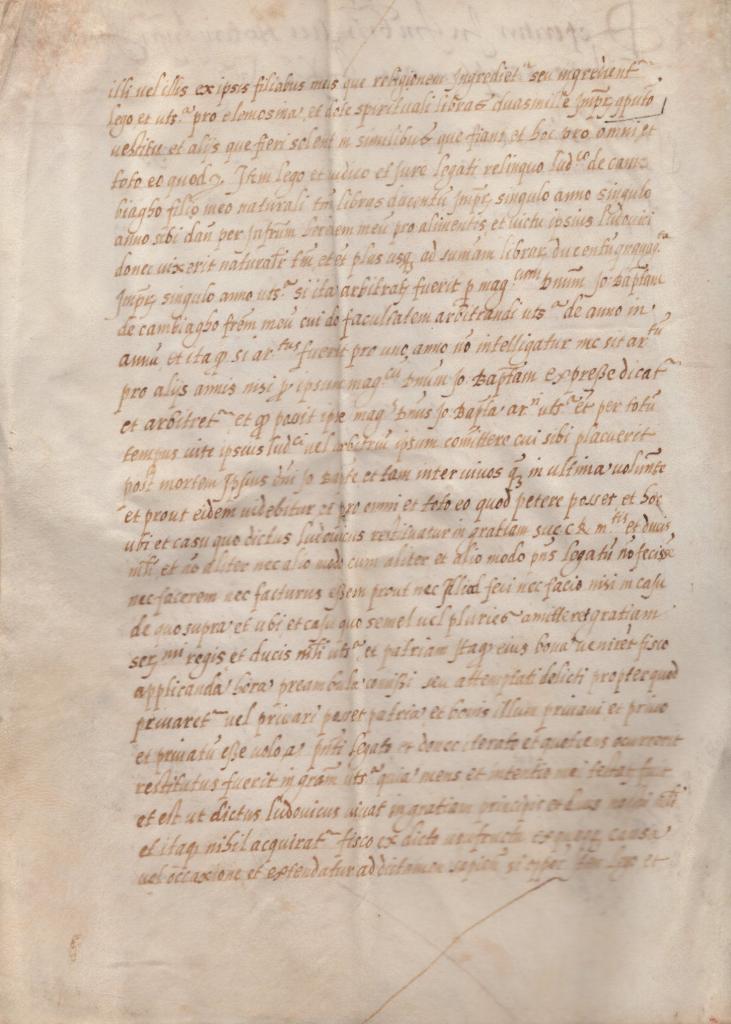 illi vel illis ex ipsis filiabus meis que religionem Ingrediet.ʳ seu ingredient.ʳ
lego et uts.ᵃ pro elemosina et dote spirituali libras duasmille Impr̃ oputo
vestitu et alijs que fieri solent in similibus que fiant et hoc pro omni et
toto eo quod Item lego et iudico et Jure legati relinquo lud.ᶜᵒ de cam
biagho filio meo naturali tm̃ libras ducentũ Impr̃ singulo anno singulo
anno sibi dañ per Infrum heredem meũ pro alimentis et victu ipsius ludovici
donec vixerit naturalr̃ tm̃, et et plus usq ad sumam librar ducentũ
Impr̃ singulo anno uts.ᵃ si ita arbitrat fuerit p mag.ᶜᵘᵐ Dnum Jo Bap̃tam
de cambiagho frẽm meũ cui do facultatem arbitrandi uts.ᵃ de anno in
annũ, et ita q si ar.ᵗᵘˢ fuerit pro uno anno nõ intelligatur nec sit ar.ᵗᵘ
pro alijs annis nisi p ipsum mag.ᶜᵘ Dnum Jo Bap̃tam expreße dicat.ʳ
et arbitret.ʳ et q possit ipse mag.ᶜᵘˢ Dñus Jo Bap̃ta ar.ʳⁱ uts.ᵃ et per totũ
tempus vite ipsius lud.ᶜⁱ vel arbitriũ ipsum com̃ittere cui sibi placuerit
post mortem Ipsius dñi Jo Bap̃te et tam inter vivos q̃ in ultima volunte
et prout eidem videbitur et pro omni et toto eo quod petere posset et hoc
ubi et casu quo dictus ludovicus restituatur in gratiam m.ᵗⁱˢ et ducis
nr̃i et nõ aliter nec alio modo cum aliter et alio modo pñs legatũ nõ feciße
nec facerem nec facturus eßem prout nec Illud feci nec facio nisi in casu
de quo supra et ubi et casu quo semel vel pluries amitteret gratiam
ser.ᵐⁱ regis et ducis nr̃i uts.ᵃ et patriam Itaq eius bona venirẽt fisco
applicanda hora preambula comißi seu attemptati delicti propter quod
privaret.ʳ vel privari posset patria et bonis illum privavi et privo
et privatũ eße volo a pñti legato et donec iterato et quotiens ocurrerit
restitutus fuerit in grãm uts.ᵃ quia mens et intentio mei testat fuit
et est ut dictus ludovicus vivat in gratiam principis et ducis nr̃i
et itaq nihil acquirat.ʳ fisco ex dicto usufructu ex quaq causa
vel occaxione et extendatur ad dictamen sapien si Item lego et